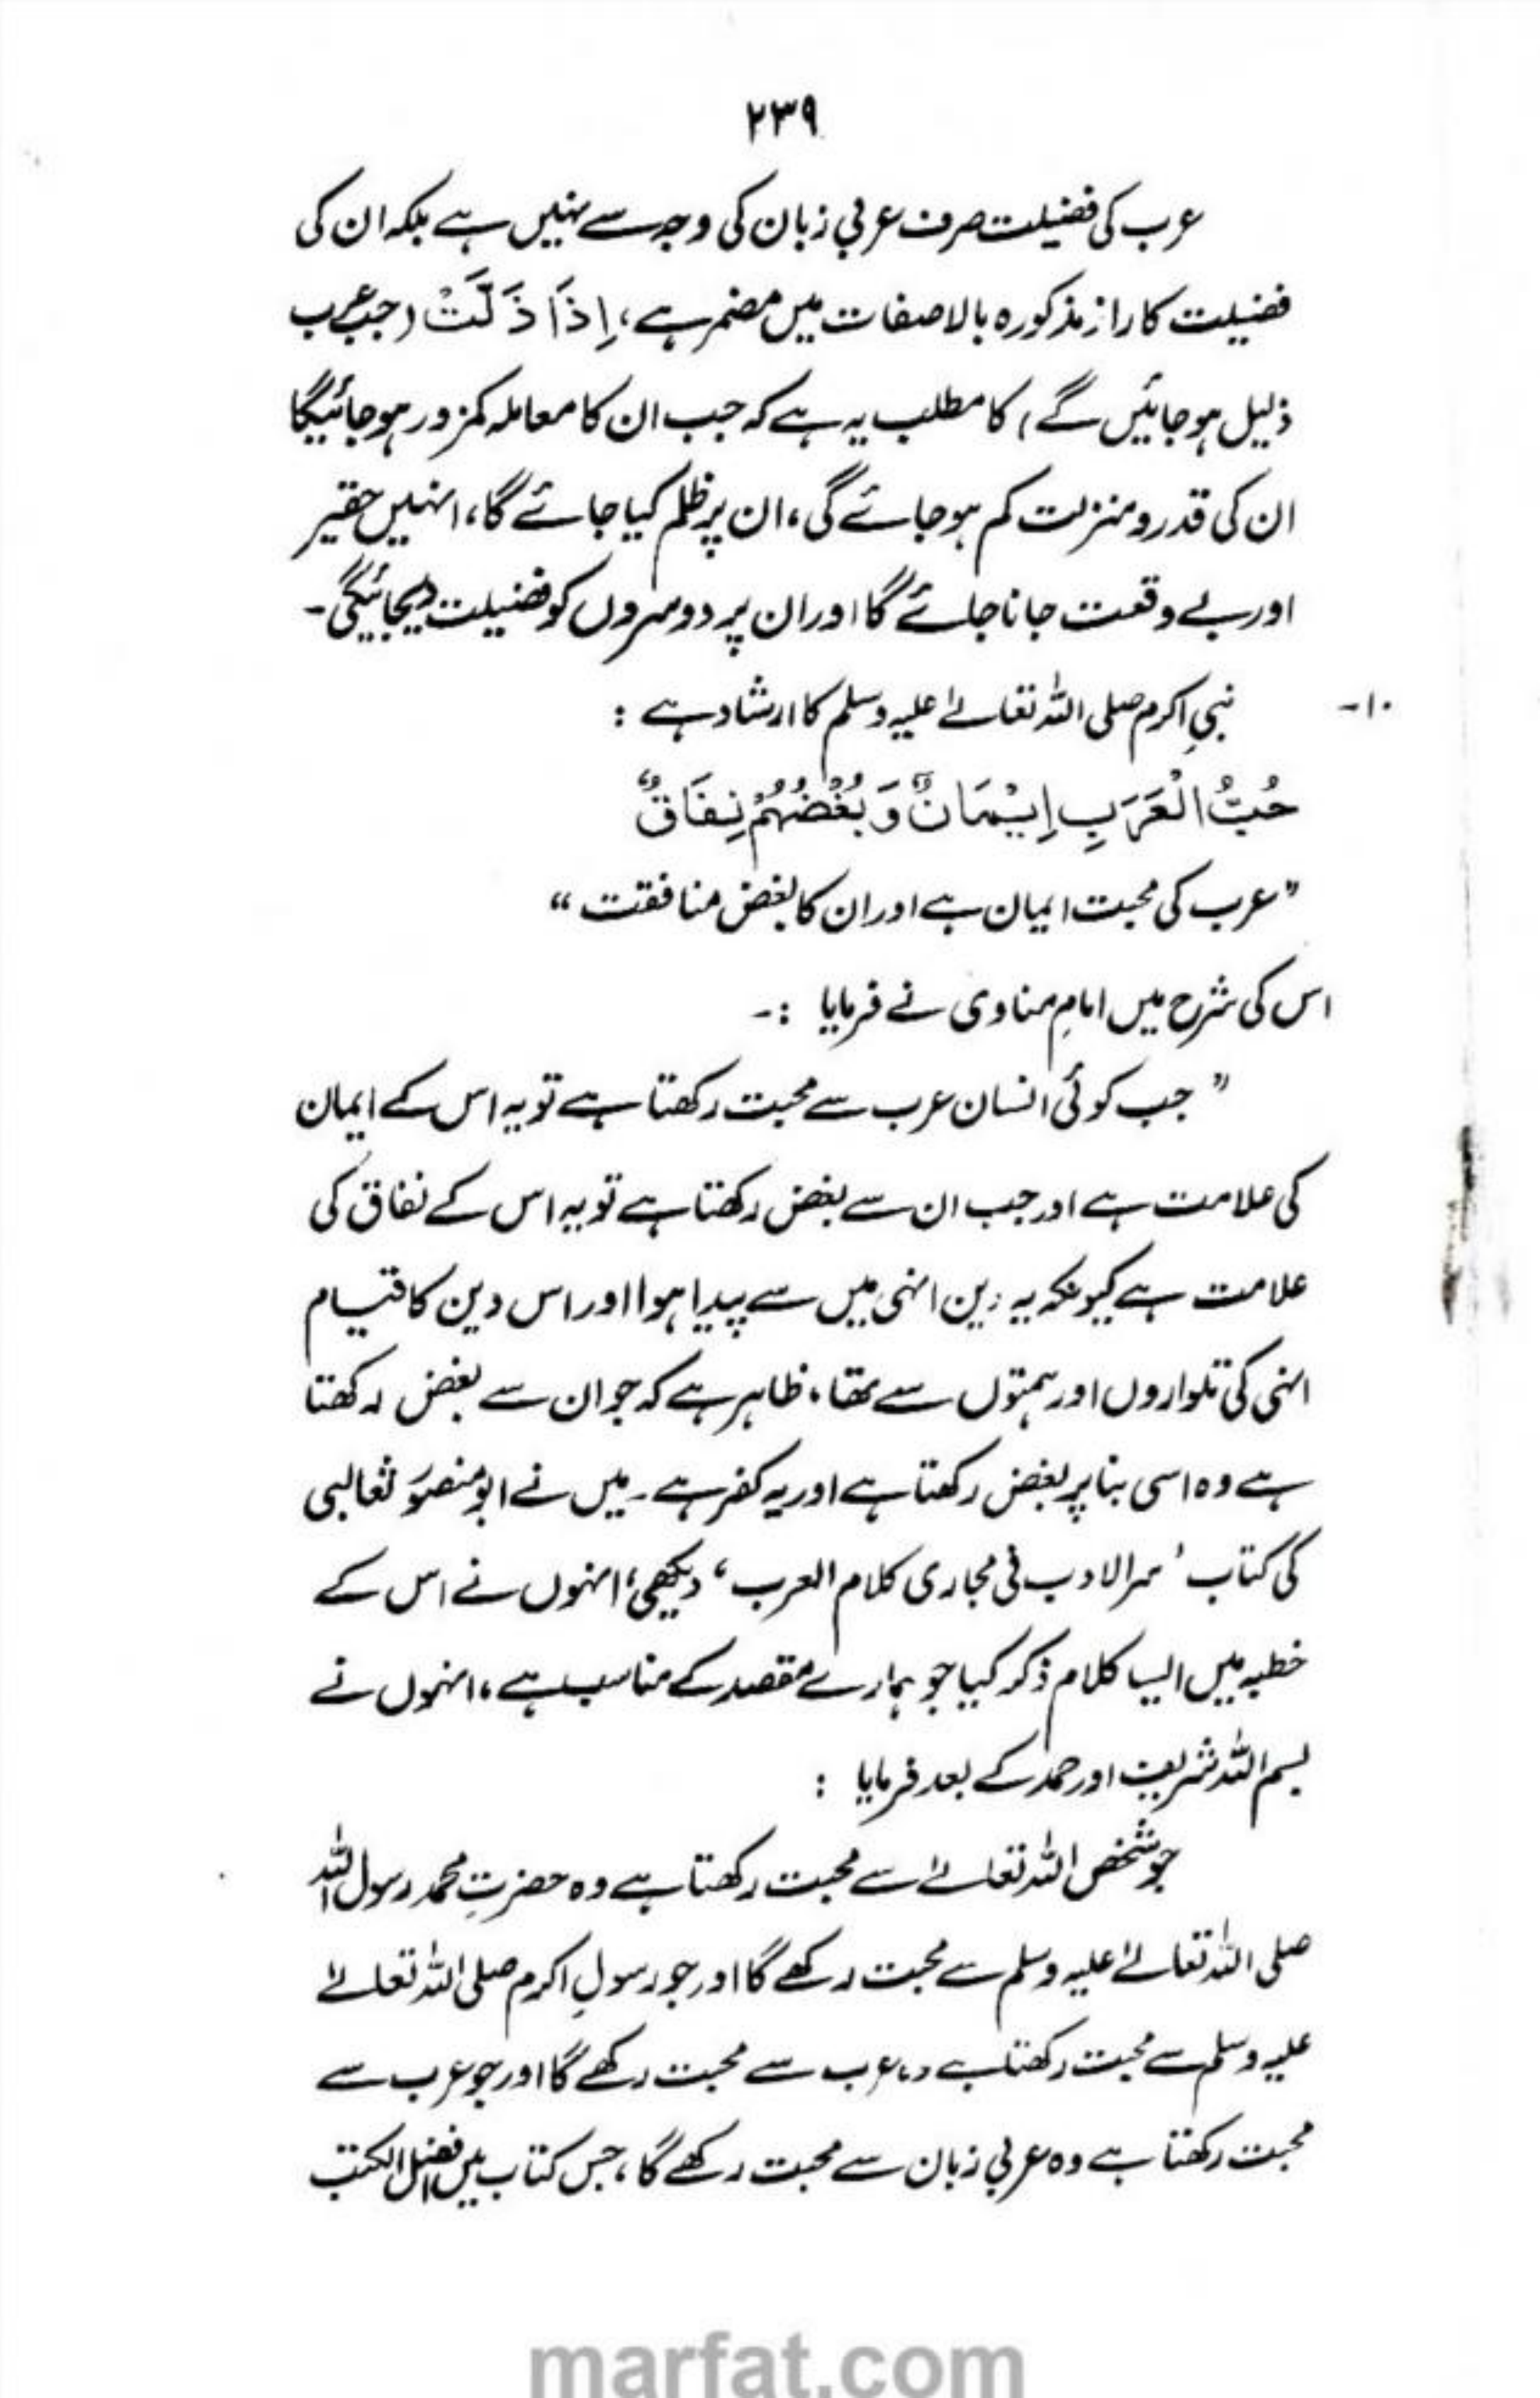 ۲۳۹
عرب کی فضیلت صرف عربی زبان کی وجہ سے نہیں ہے بلکہ ان کی
فضیلت کا راز مذکورہ بالا صفات میں مضمر ہے، اِذَا ذَلَّتْ (جب عرب
ذلیل ہو جائیں گے) کا مطلب یہ ہے کہ جب ان کا معاملہ کمزور ہو جائیگا
ان کی قدر و منزلت کم ہو جائے گی، ان پر ظلم کیا جائے گا، انہیں حقیر
اور بے وقعت جانا جائے گا اور ان پر دوسروں کو فضیلت دیجائیگی۔
۱۰۔ نبیِ اکرم صلی اللہ تعالےٰ علیہ وسلم کا ارشاد ہے :
حُبُّ الْعَرَبِ اِیْمَانٌ وَ بُغْضُہُمْ نِفَاقٌ
” عرب کی محبت ایمان ہے اور ان کا بغض منافقت “
اس کی شرح میں امامِ مناوی نے فرمایا :۔
” جب کوئی انسان عرب سے محبت رکھتا ہے تو یہ اس کے ایمان
کی علامت ہے اور جب ان سے بغض رکھتا ہے تو یہ اس کے نفاق کی
علامت ہے کیونکہ یہ دین انہی میں سے پیدا ہوا اور اس دین کا قیام
انہی کی تلواروں اور ہمتوں سے تھا، ظاہر ہے کہ جو ان سے بغض رکھتا
ہے وہ اسی بنا پر بغض رکھتا ہے اور یہ کفر ہے۔ میں نے ابو منصور ثعالبی
کی کتاب ’ سر الادب فی مجاری کلام العرب ‘ دیکھی، انہوں نے اس کے
خطبہ میں ایسا کلام ذکر کیا جو ہمارے مقصد کے مناسب ہے، انہوں نے
بسم اللہ شریف اور حمد کے بعد فرمایا :
جو شخص اللہ تعالےٰ سے محبت رکھتا ہے وہ حضرتِ محمد رسول اللہ
صلی اللہ تعالےٰ علیہ وسلم سے محبت رکھے گا اور جو رسولِ اکرم صلی اللہ تعالےٰ
علیہ وسلم سے محبت رکھتا ہے وہ عرب سے محبت رکھے گا اور جو عرب سے
محبت رکھتا ہے وہ عربی زبان سے محبت رکھے گا، جس کتاب میں افضل الکتب
marfat.com